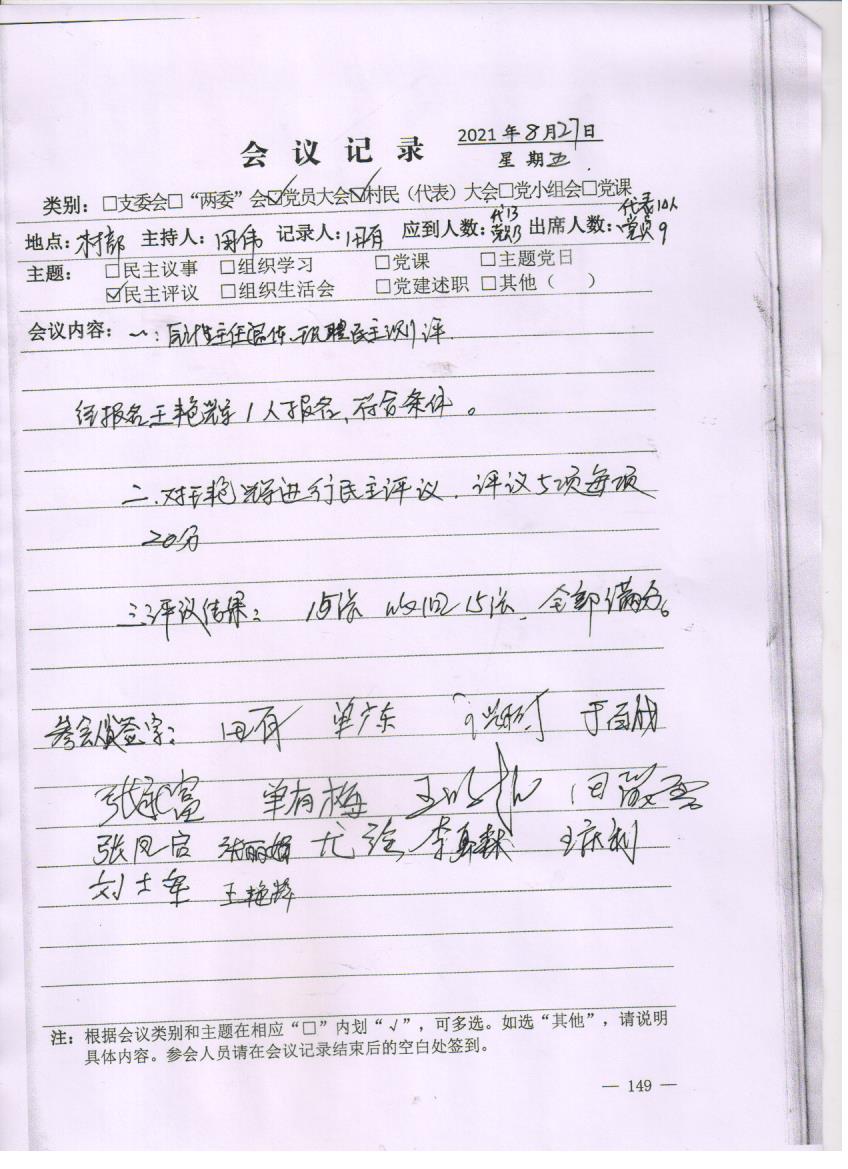 会议记录 2021年8月27日
星期五
类别：□支委会□“两委”会☑党员大会☑村民（代表）大会□党小组会□党课
地点：村部 主持人：田伟 记录人：田有 应到人数：代13 党员13 出席人数：代表10人 党员9
主题： □民主议事 □组织学习 □党课 □主题党日
☑民主评议 □组织生活会 □党建述职 □其他（ ）
会议内容：一：民主测评
经报名王艳辉1人报名、符合条件。
二、对王艳辉进行民主评议．评议5项每项
20分
三：评议结果： 15张 收回15张、全部满分。
参会人员签字： 田有 单广东 于百成
张永富 单有梅
张凤宫 张丽娟 尤 李 王庆利
刘士军 王艳辉
注：根据会议类别和主题在相应“□”内划“√”，可多选。如选“其他”，请说明
具体内容。参会人员请在会议记录结束后的空白处签到。
— 149 —